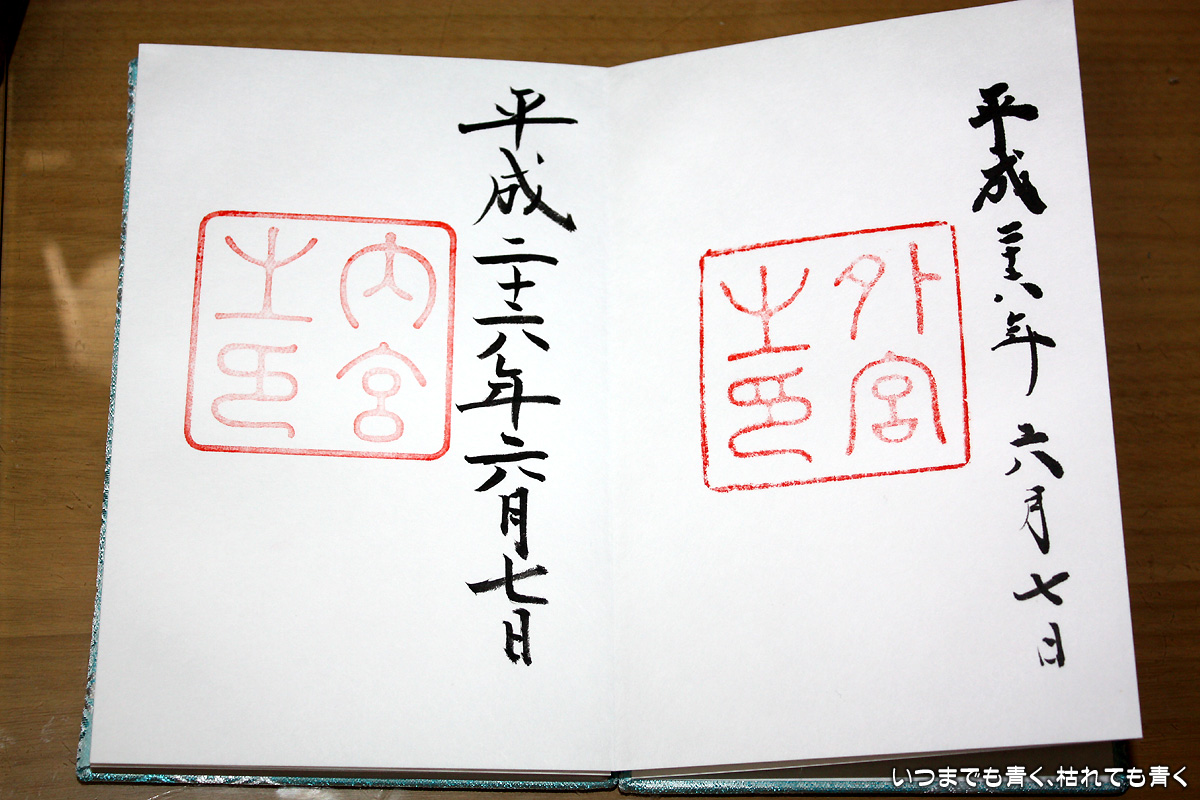 平成二十六年六月七日
外宮之印
平成二十六年六月七日
内宮之印
いつまでも青く、枯れても青く